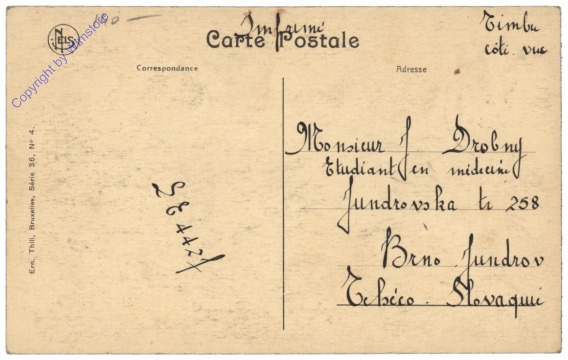 40-
Imprimé
Timbre
côté vue
NELS
Carte Postale
Correspondance
Adresse
Monsieur J Drobny
Etudiant en médecine
Jundrovska tr 258
Brno Jundrov
Tchéco-Slovaquie
Ern. Thill, Bruxelles, Série 36, Nº 4.
Copyright by